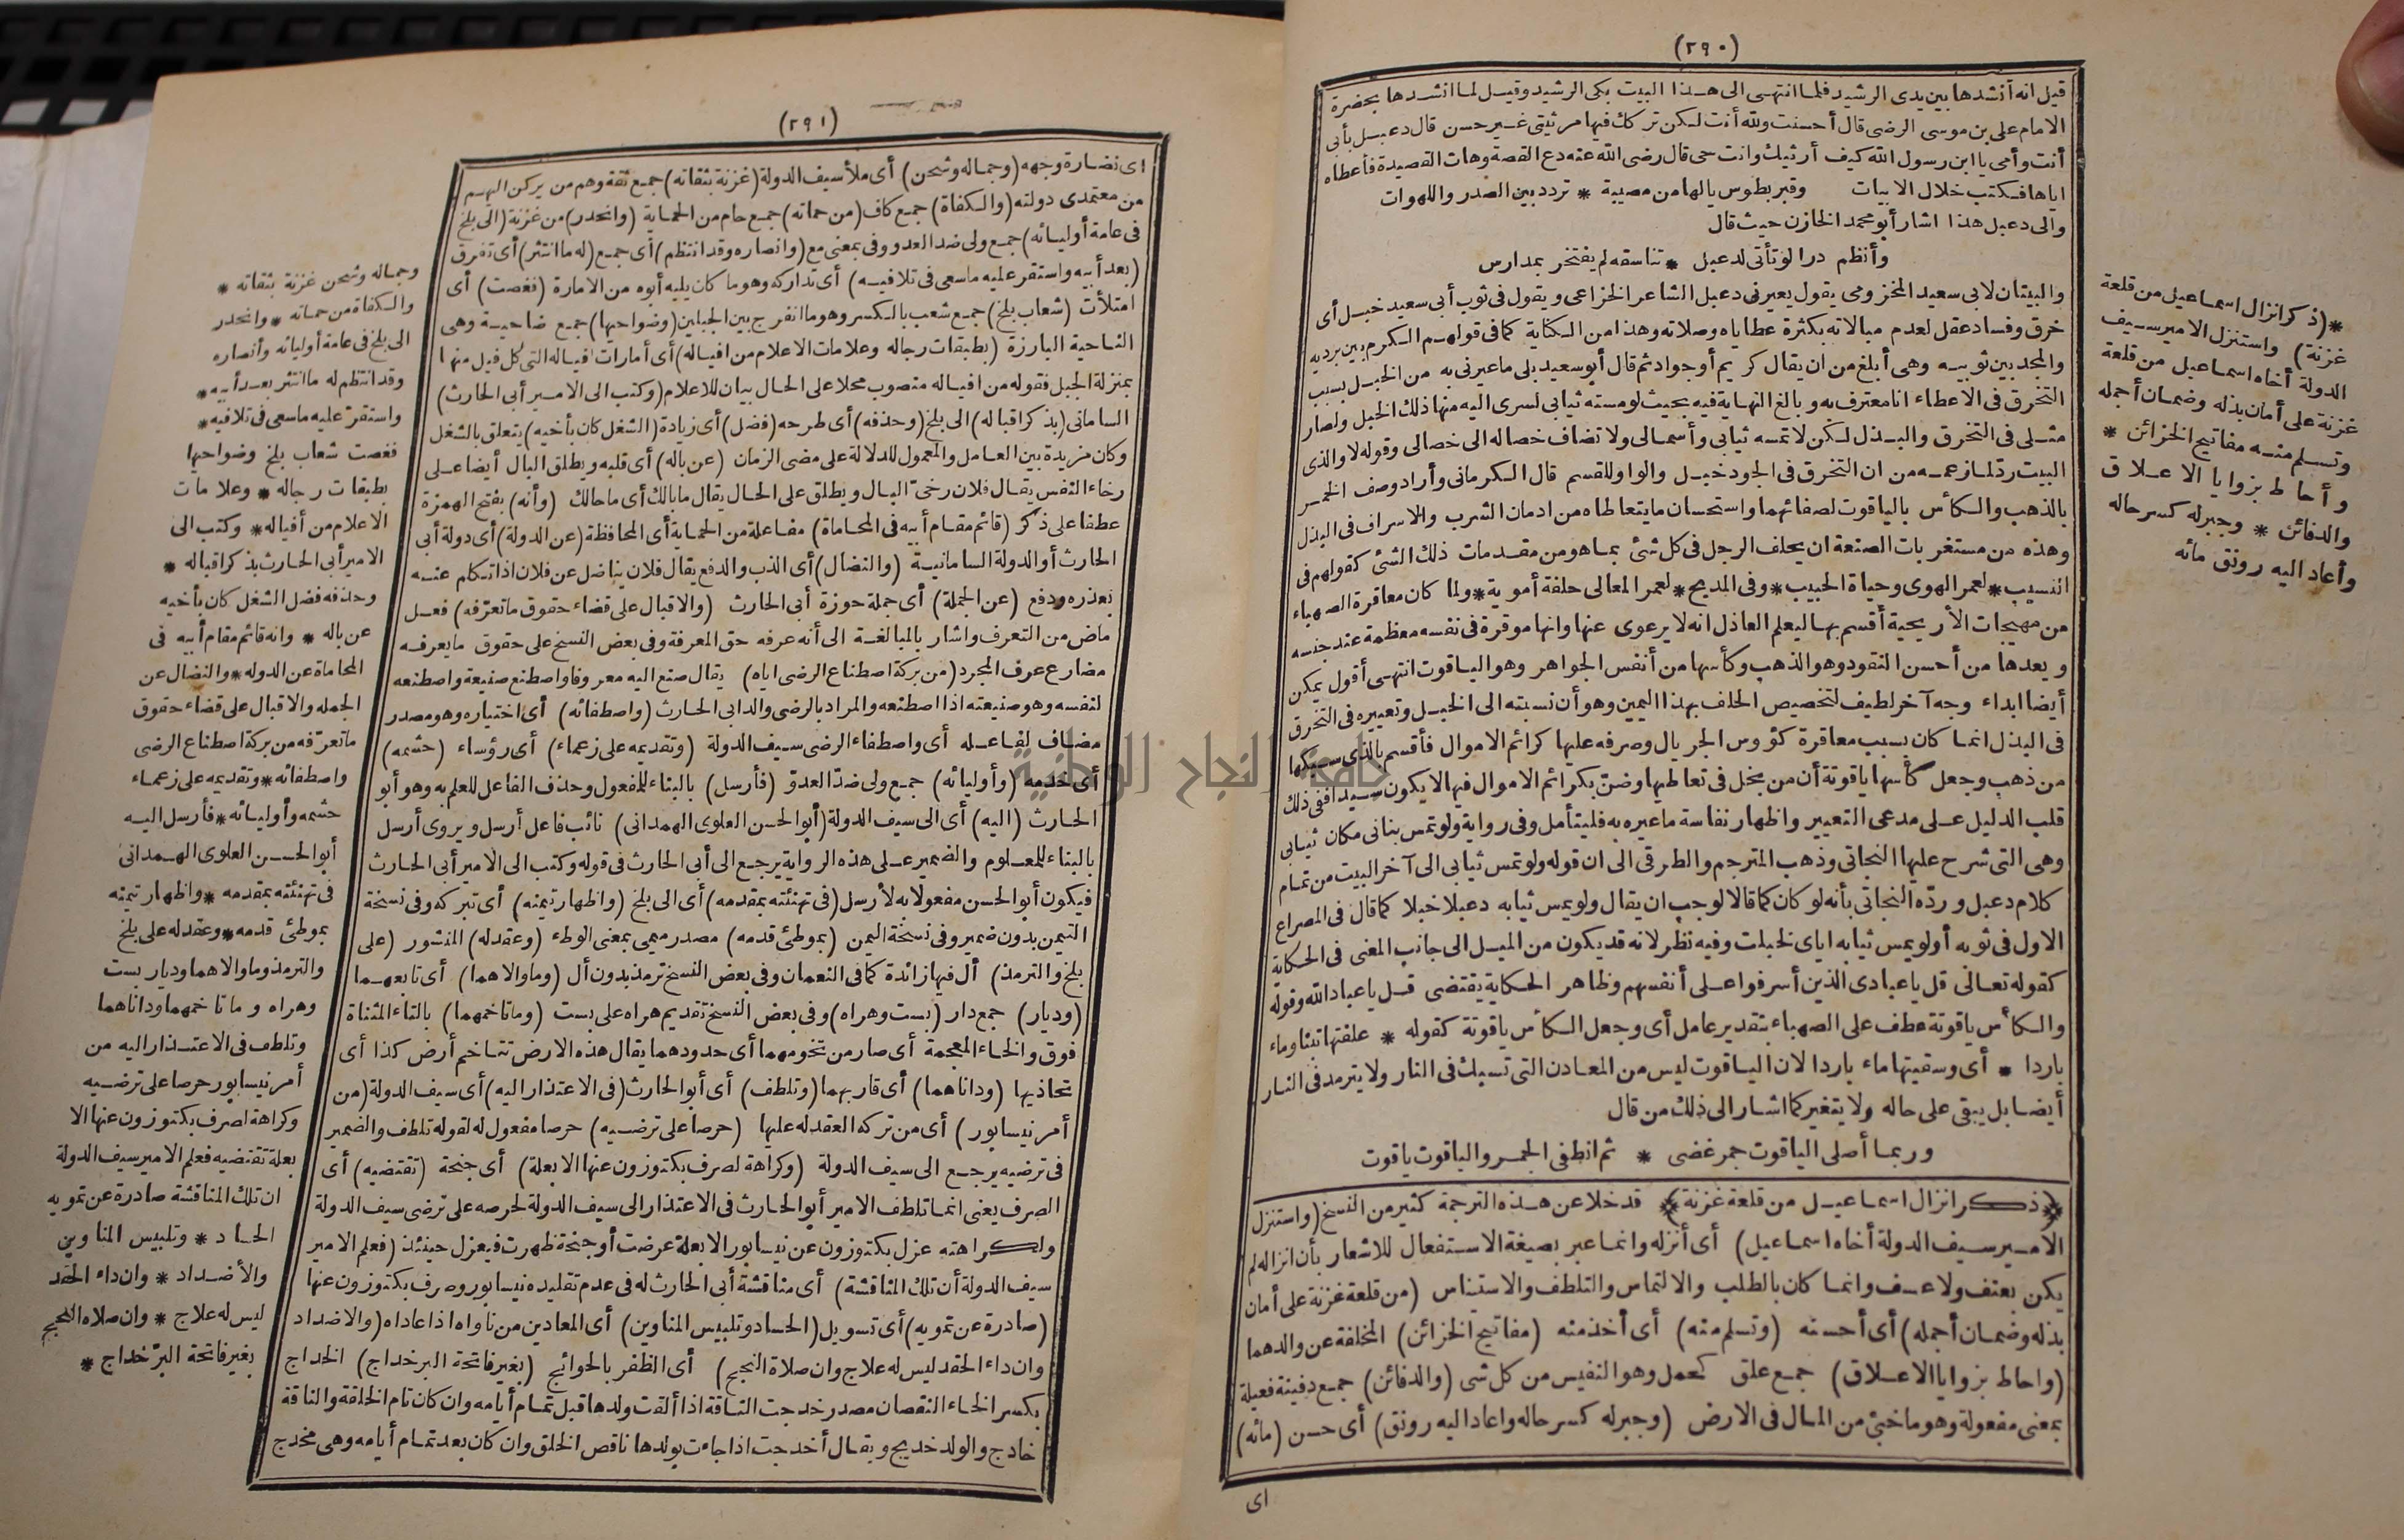 (٢٩٠)
قيل انه أنشدها بين يدى الرشيد فلما انتهى الى هذا البيت بكى الرشيد وقيل لما انشدها بحضرة
الامام على بن موسى الرضى قال أحسنت ولله أنت لكن تركك فيها مرثيتى غير حسن قال دعبل بأبى
أنت وأمى يا ابن رسول الله كيف أرثيك وانت حى قال رضى الله عنه دع القصة وهات القصيدة فأعطاه
اياها فكتب خلال الابيات وقبر بطوس يالها من مصيبة * تردد بين الصدر واللهوات
والى دعبل هذا اشار أبو محمد الخازن حيث قال
وأنظم درا لو تأتى لدعبل * تناسقه لم يفتخر بمدارس
والبيتان لابى سعيد المخزومى يقول يعيرنى دعبل الشاعر الخزاعى ويقول فى ثوب أبى سعيد خبل أى
خرق وفساد عقل لعدم مبالاته بكثرة عطاياه وصلاته وهذا من الكناية كما فى قولهم الكرم بين برديه
والمجد بين ثوبيه وهى أبلغ من ان يقال كريم أو جواد ثم قال أبو سعيد بلى ما عيرنى به من الخبل بسبب
التخرق فى الاعطاء انا معترف به وبالغ النهاية فيه بحيث لو مسته ثيابى لسرى اليه منها ذلك الخبل ولصار
مثلى فى التخرق والبذل لكن لا تمسه ثيابى وأسمالى ولا تضاف خصاله الى خصالى وقوله لا والذى
البيت ردّ لما زعمه من ان التخرق فى الجود خبل والواو للقسم قال الكرمانى وأراد وصف الخمر
بالذهب والكأس بالياقوت لصفائهما واستحسان ما يتعاطاه من ادمان الشرب والاسراف فى البذل
وهذه من مستغربات الصنعة ان يحلف الرجل فى كل شئ بما هو من مقدمات ذلك الشئ كقولهم فى
النسيب * لعمر الهوى وحياة الحبيب * وفى المديح * لعمر المعالى حلفة أموية * ولما كان معاقرة الصهباء
من مهيجات الأريحية أقسم بها ليعلم العاذل انه لا يرعوى عنها وانها موقرة فى نفسه معظمة عند جنسه
ويعدها من أحسن النقود وهو الذهب وكأسها من أنفس الجواهر وهو الياقوت انتهى أقول يمكن
أيضا ابداء وجه آخر لطيف لتخصيص الحلف بهذا اليمين وهو أن نسبته الى الخبل وتعييره فى التخرق
فى البذل انما كان بسبب معاقرة كؤوس الجريال وصرفه عليها كرائم الاموال فأقسم بالذى سبكها
من ذهب وجعل كأسها ياقوتة أن من بخل فى تعاطيها وضنّ بكرائم الاموال فيها لا يكون سيدا ففى ذلك
قلب الدليل على مدعى التعيير واظهار نفاسة ما عيره به فليتأمل وفى رواية ولو تمس بنانى مكان ثيابى
وهى التى شرح عليها النجاتى وذهب المترجم والطرقى الى ان قوله ولو تمس ثيابى الى آخر البيت من تمام
كلام دعبل وردّه النجاتى بأنه لو كان كما قالا لوجب ان يقال ولو يمس ثيابه دعبلا خبلا كما قال فى المصراع
الاول فى ثوبه أو لو يمس ثيابه اياى لخبلت وفيه نظر لانه قد يكون من الميل الى جانب المعنى فى الحكاية
كقوله تعالى قل يا عبادى الذين أسرفوا على أنفسهم وظاهر الحكاية يقتضى قل يا عباد الله وقوله
والكأس ياقوتة عطف على الصهباء بتقدير عامل أى وجعل الكأس ياقوتة كقوله * علفتها تبنا وماء
باردا * أى وسقيتها ماء باردا لان الياقوت ليس من المعادن التى تسبك فى النار ولا يترمد فى النار
أيضا بل يبقى على حاله ولا يتغير كما اشار الى ذلك من قال
وربما أصلى الياقوت جمر غضى * ثم انطفى الجمر والياقوت ياقوت
﴿ذكر انزال اسماعيل من قلعة غزنة﴾ قد خلا عن هذه الترجمة كثير من النسخ (واستنزل
الامير سيف الدولة أخاه اسماعيل) أى أنزله وانما عبر بصيغة الاستفعال للاشعار بأن انزاله لم
يكن بعنف ولا عسف وانما كان بالطلب والالتماس والتلطف والاستيناس (من قلعة غزنة على أمان
بذله وضمان أجمله) أى أحسنه (وتسلم منه) أى أخذ منه (مفاتيح الخزائن) المخلفة عن والدهما
(واحاط بزوايا الاعلاق) جمع علق كحمل وهو النفيس من كل شى (والدفائن) جمع دفينة فعيلة
بمعنى مفعولة وهو ما خبئ من المال فى الارض (وجبر له كسر حاله واعاد اليه رونق) أى حسن (مائه)
اى
*(ذكر انزال اسماعيل من قلعة
غزنة) واستنزل الامير سيف
الدولة أخاه اسماعيل من قلعة
غزنة على أمان بذله وضمان أجمله
وتسلم منه مفاتيح الخزائن *
وأحاط بزوايا الاعلاق
والدفائن * وجبر له كسر حاله
وأعاد اليه رونق مائه
(٢٩١)
اى نضارة وجهه (وجماله وشحن) أى ملأ سيف الدولة (غزنة بثقاته) جمع ثقة وهم من يركن اليهم
من معتمدى دولته (والكفاة) جمع كاف (من حماته) جمع حام من الحماية (وانحدر) من غزنة (الى بلخ
فى عامة أوليائه) جمع ولى ضد العدو وفى بمعنى مع (وانصاره وقد انتظم) أى جمع (له ما انتثر) أى تفرق
(بعد أبيه واستقر عليه ما سعى فى تلافيه) أى تداركه وهو ما كان يليه أبوه من الامارة (فغصت) أى
امتلأت (شعاب بلخ) جمع شعب بالكسر وهو ما انفرج بين الجبلين (وضواحيها) جمع ضاحية وهى
الناحية البارزة (بطبقات رجاله وعلامات الاعلام من افياله) أى أمارات افياله التى كل فيل منها
بمنزلة الجبل فقوله من افياله منصوب محلا على الحال بيان للاعلام (وكتب الى الامير أبى الحارث)
السامانى (بذكر اقباله) الى بلخ (وحذفه) أى طرحه (فضل) أى زيادة (الشغل كان بأخيه) يتعلق بالشغل
وكان مزيدة بين العامل والمعمول للدلالة على مضى الزمان (عن باله) أى قلبه ويطلق البال أيضا على
رخاء النفس يقال فلان رخىّ البال ويطلق على الحال يقال ما بالك أى ما حالك (وأنه) بفتح الهمزة
عطفا على ذكر (قائم مقام أبيه فى المحاماة) مفاعلة من الحماية أى المحافظة (عن الدولة) أى دولة أبى
الحارث أو الدولة السامانية (والنضال) أى الذب والدفع يقال فلان يناضل عن فلان اذا تكلم عنه
بعذره ودفع (عن الجملة) أى جملة حوزة أبى الحارث (والاقبال على قضاء حقوق ما تعرّفه) فعل
ماض من التعرف واشار بالمبالغة الى أنه عرفه حق المعرفة وفى بعض النسخ على حقوق ما يعرفه
مضارع عرف المجرد (من بركة اصطناع الرضى اياه) يقال صنع اليه معروفا واصطنع صنيعة واصطنعه
لنفسه وهو صنيعته اذا اصطنعه والمراد بالرضى والد ابى الحارث (واصطفائه) أى اختياره وهو مصدر
مضاف لفاعله أى واصطفاء الرضى سيف الدولة (وتقديمه على زعماء) أى رؤساء (حشمه)
أى خدمه (وأوليائه) جمع ولى ضدّ العدوّ (فأرسل) بالبناء للمفعول وحذف الفاعل للعلم به وهو أبو
الحارث (اليه) أى الى سيف الدولة (أبو الحسن العلوى الهمدانى) نائب فاعل أرسل ويروى أرسل
بالبناء للمعلوم والضمير على هذه الرواية يرجع الى أبى الحارث فى قوله وكتب الى الامير أبى الحارث
فيكون أبو الحسن مفعولا به لأرسل (فى تهنئته بمقدمه) أى الى بلخ (واظهار تيمنه) أى تبركه وفى نسخة
التيمن بدون ضمير وفى نسخة اليمن (بموطئ قدمه) مصدر ميمى بمعنى الوطء (وعقد له) المنشور (على
بلخ والترمذ) أل فيها زائدة كما فى النعمان وفى بعض النسخ ترمذ بدون أل (وما والاهما) أى تابعهما
(وديار) جمع دار (بست وهراه) وفى بعض النسخ تقديم هراه على بست (وما تاخمهما) بالتاء المثناة
فوق والخاء المعجمة أى صار من تخومهما أى حدودهما يقال هذه الارض تتاخم أرض كذا أى
تحاذيها (وداناهما) أى قاربهما (وتلطف) أى أبو الحارث (فى الاعتذار اليه) أى سيف الدولة (من
أمر نيسابور) أى من تركه العقد له عليها (حرصا على ترضيه) حرصا مفعول له لقوله تلطف والضمير
فى ترضيه يرجع الى سيف الدولة (وكراهة لصرف بكتوزون عنها الا بعلة) أى جنحة (تقتضيه) أى
الصرف يعنى انما تلطف الامير أبو الحارث فى الاعتذار الى سيف الدولة لحرصه على ترضى سيف الدولة
ولكراهته عزل بكتوزون عن نيسابور الا بعلة عرضت أو جنحة ظهرت فيعزل حينئذ (فعلم الامير
سيف الدولة أن تلك المناقشة) أى مناقشة أبى الحارث له فى عدم تقليده نيسابور وصرف بكتوزون عنها
(صادرة عن تمويه) أى تسويل (الحساد وتلبيس المناوين) أى المعادين من ناواه اذا عاداه (والاضداد
وان داء الحقد ليس له علاج وان صلاة النجح) أى الظفر بالحوائج (بغير فاتحة البر خداج) الخداج
بكسر الخاء النقصان مصدر خدجت الناقة اذا ألقت ولدها قبل تمام أيامه وان كان تام الخلقة والناقة
خادج والولد خديج ويقال أخدجت اذا جاءت بولدها ناقص الخلق وان كان بعد تمام أيامه وهى مخدج
وجماله وشحن غزنة بثقاته *
والكفاة من حماته * وانحدر
الى بلخ فى عامة أوليائه وأنصاره
وقد انتظم له ما انتثر بعد أبيه *
واستقرّ عليه ما سعى فى تلافيه *
فغصت شعاب بلخ وضواحيها
بطبقات رجاله * وعلامات
الاعلام من أفياله * وكتب الى
الامير أبى الحارث بذكر اقباله *
وحذفه فضل الشغل كان بأخيه
عن باله * وانه قائم مقام أبيه فى
المحاماة عن الدولة * والنضال عن
الجمله والاقبال على قضاء حقوق
ما تعرّفه من بركة اصطناع الرضى
واصطفائه * وتقديمه على زعماء
حشمه وأوليائه * فأرسل اليه
أبو الحسن العلوى الهمدانى
فى تهنئته بمقدمه * واظهار تيمنه
بموطئ قدمه * وعقد له على بلخ
والترمذ وما والاهما وديار بست
وهراه وما تاخمهما وداناهما
وتلطف فى الاعتذار اليه من
أمر نيسابور حرصا على ترضيه
وكراهة لصرف بكتوزون عنها الا
بعلة تقتضيه فعلم الامير سيف الدولة
ان تلك المناقشة صادرة عن تمويه
الحساد * وتلبيس المناوين
والأضداد * وان داء الحقد
ليس له علاج * وان صلاه النجح
بغير فاتحة البرّ خداج *
جامعة النجاح الوطنية